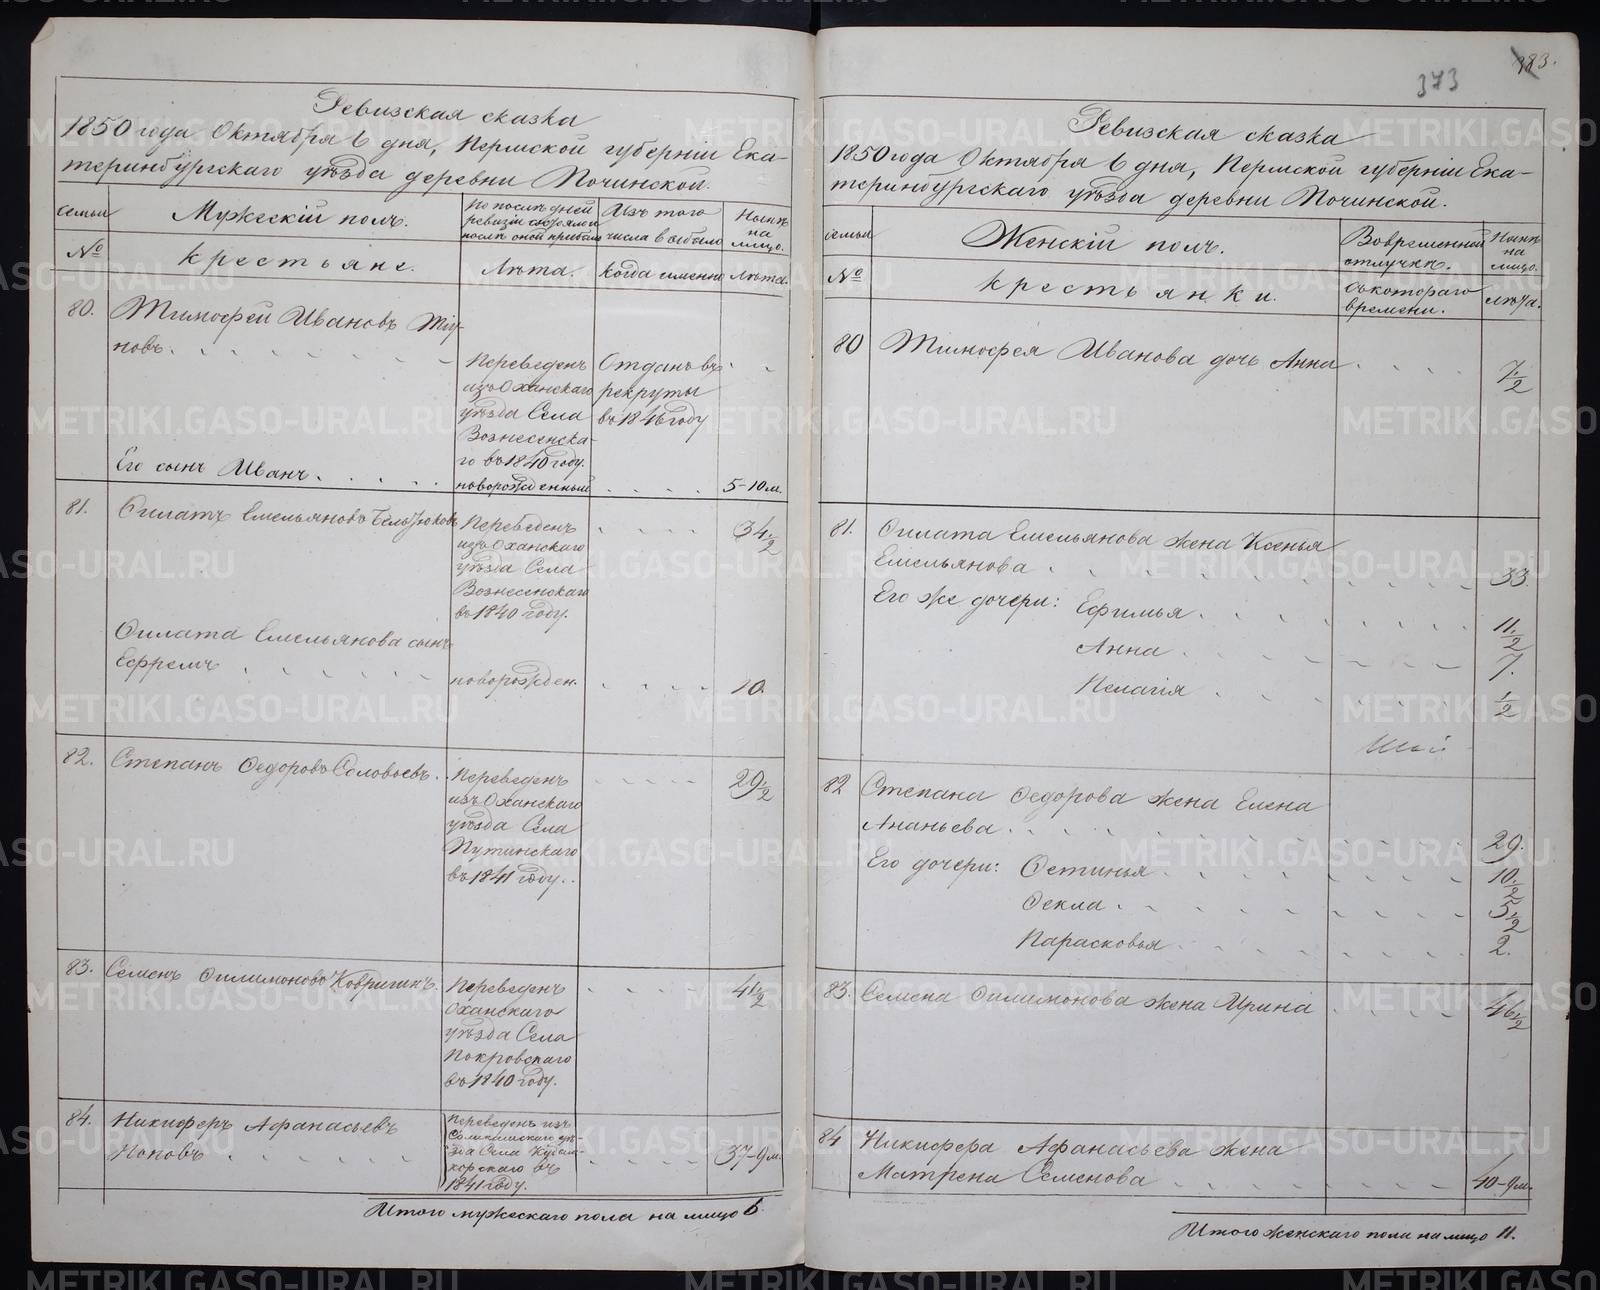 Ревизская сказка
1850 года Октября 6 дня, Пермской губерніи Ека-
теринбургскаго уѣзда деревни Починской.
семьи
Мужескій полъ.
По послѣдней
ревизіи состояло и
послѣ оной прибыло
Изъ того
числа выбыло
Нынѣ
на
лицо.
№
крестьяне.
Лѣта.
Когда именно
Лѣта.
80.
Тимофей Ивановъ Тіу-
новъ.
Переведенъ
изъ Оханскаго
уѣзда Села
Вознесенска-
го въ 1840 году.
Отданъ въ
рекруты
въ 1846 году
Его сынъ Иванъ
новорожденный
5-10 м.
81.
Филатъ Емельяновъ
Переведенъ
изъ Оханскаго
уѣзда Села
Вознесенскаго
въ 1840 году.
34 1/2
Филата Емельянова сынъ
Ефремъ
новорожден.
10.
82.
Степанъ Федоровъ Соловьевъ
Переведенъ
изъ Оханскаго
уѣзда Села
Путинскаго
въ 1841 году.
29 1/2
83.
Семенъ Филимоновъ Ковригинъ
Переведенъ
Оханскаго
уѣзда Села
Покровскаго
въ 1840 году.
41 1/2
84.
Никифоръ Афанасьевъ
Поповъ
Переведенъ изъ
Соликамскаго уѣ-
зда Села
въ
1841 году.
37-9 м.
Итого мужескаго пола на лицо 6
373
383.
Ревизская сказка
1850 года Октября 6 дня, Пермской губерніи Ека-
теринбургскаго уѣзда деревни Починской.
семьи
Женскій полъ.
Во временной
отлучкѣ.
Нынѣ
на
лицо.
№
крестьянки.
Съ котораго
времени.
лѣта.
80
Тимофея Иванова дочь Анна
7 1/2
81.
Филата Емельянова жена Ксенья
Емельянова
33.
Его же дочери: Ефимья
11 1/2
Анна
7.
Пелагія
1/2
82
Степана Федорова жена Елена
Ананьева
29.
Его дочери: Фетинья
10 1/2
Фекла
5 1/2
Парасковья
2.
83.
Семена Филимонова жена Ирина
46 1/2
84
Никифора Афанасьева жена
Матрена Семенова
40-9 м.
Итого женскаго пола на лицо 11.
METRIKI.GASO-URAL.RU